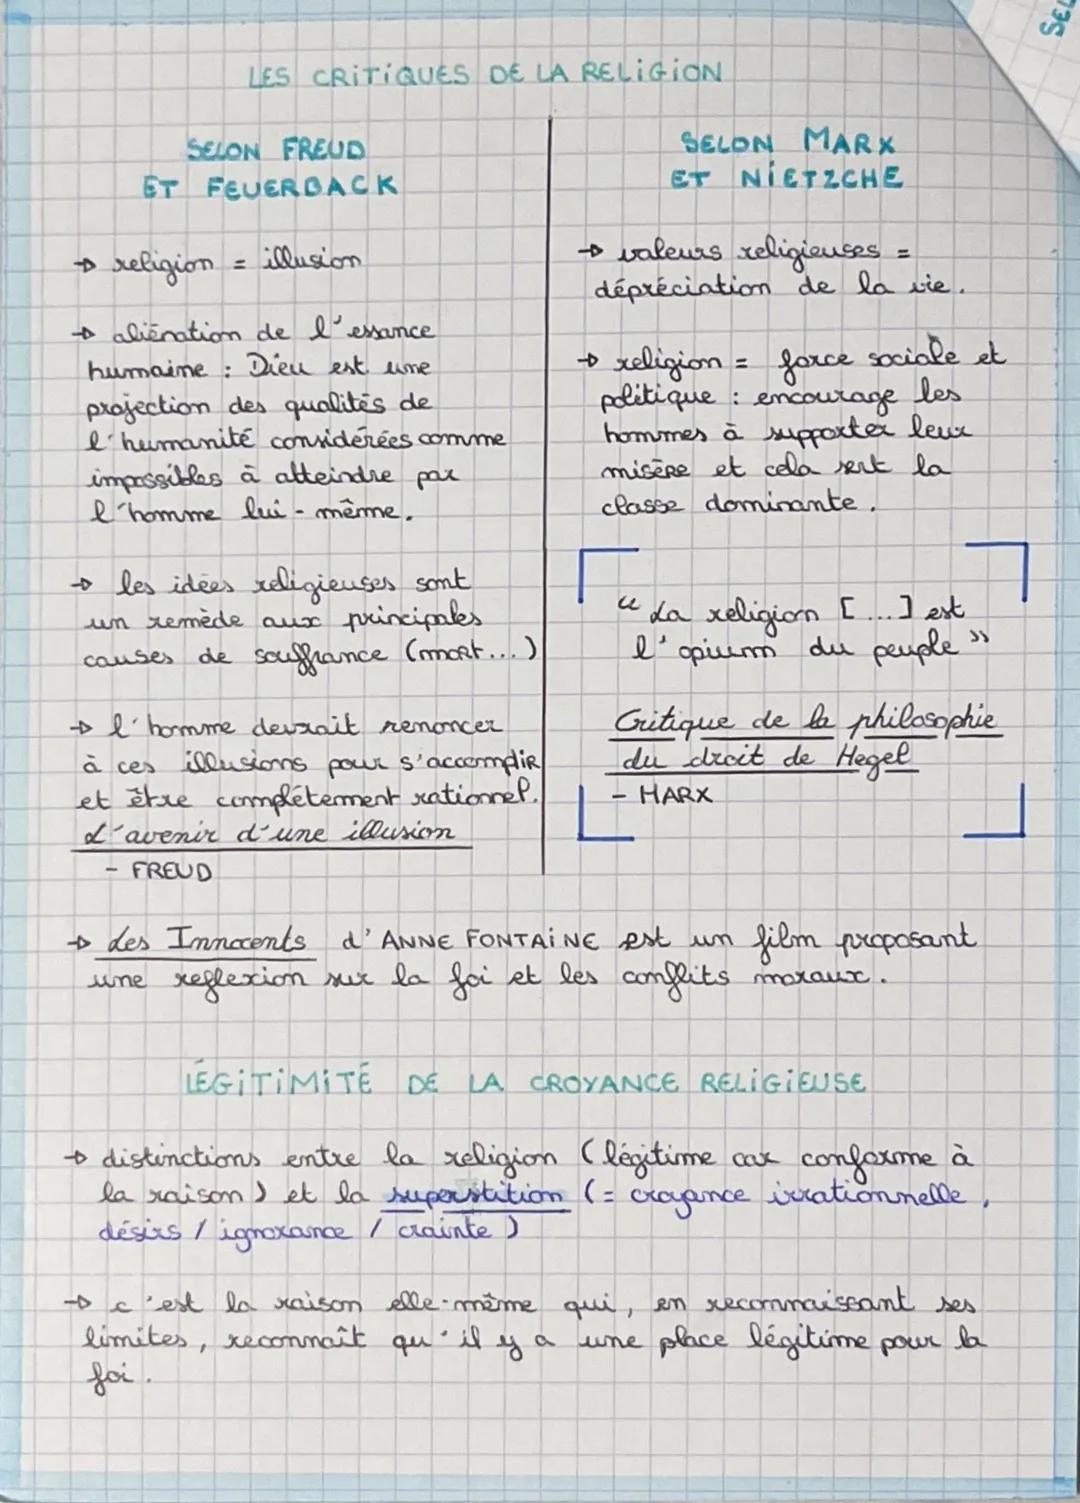 SEL
LES CRITIQUES DE LA RELIGION
SELON FREUD
ET FEUERBACK
→ religion = illusion
→ aliénation de l'essance
humaine : Dieu est une
projection des qualités de
l'humanité considérées comme
impossibles à atteindre par
l'homme lui-même.
→ les idées religieuses sont
un remède aux principales
causes de souffrance (mort...)
→ l'homme devrait renoncer
à ces illusions pour s'accomplir
et être complétement rationnel.
L'avenir d'une illusion
- FREUD
SELON MARX
ET NIETZCHE
→ valeurs religieuses =
dépréciation de la vie.
→ religion = force sociale et
politique : encourage les
hommes à supporter leur
misère et cela sert la
classe dominante.
" La religion [...] est
l'opium du peuple "
Critique de la philosophie
du droit de Hegel
- MARX
→ Les Innocents d'ANNE FONTAINE est un film proposant
une reflexion sur la foi et les conflits moraux.
LÉGITIMITÉ DE LA CROYANCE RELIGIEUSE
→ distinctions entre la religion (légitime car conforme à
la raison) et la superstition (= croyance irrationnelle,
désirs / ignorance / crainte)
→ c'est la raison elle-même qui, en reconnaissant ses
limites, reconnaît qu'il y a une place légitime pour la
foi.